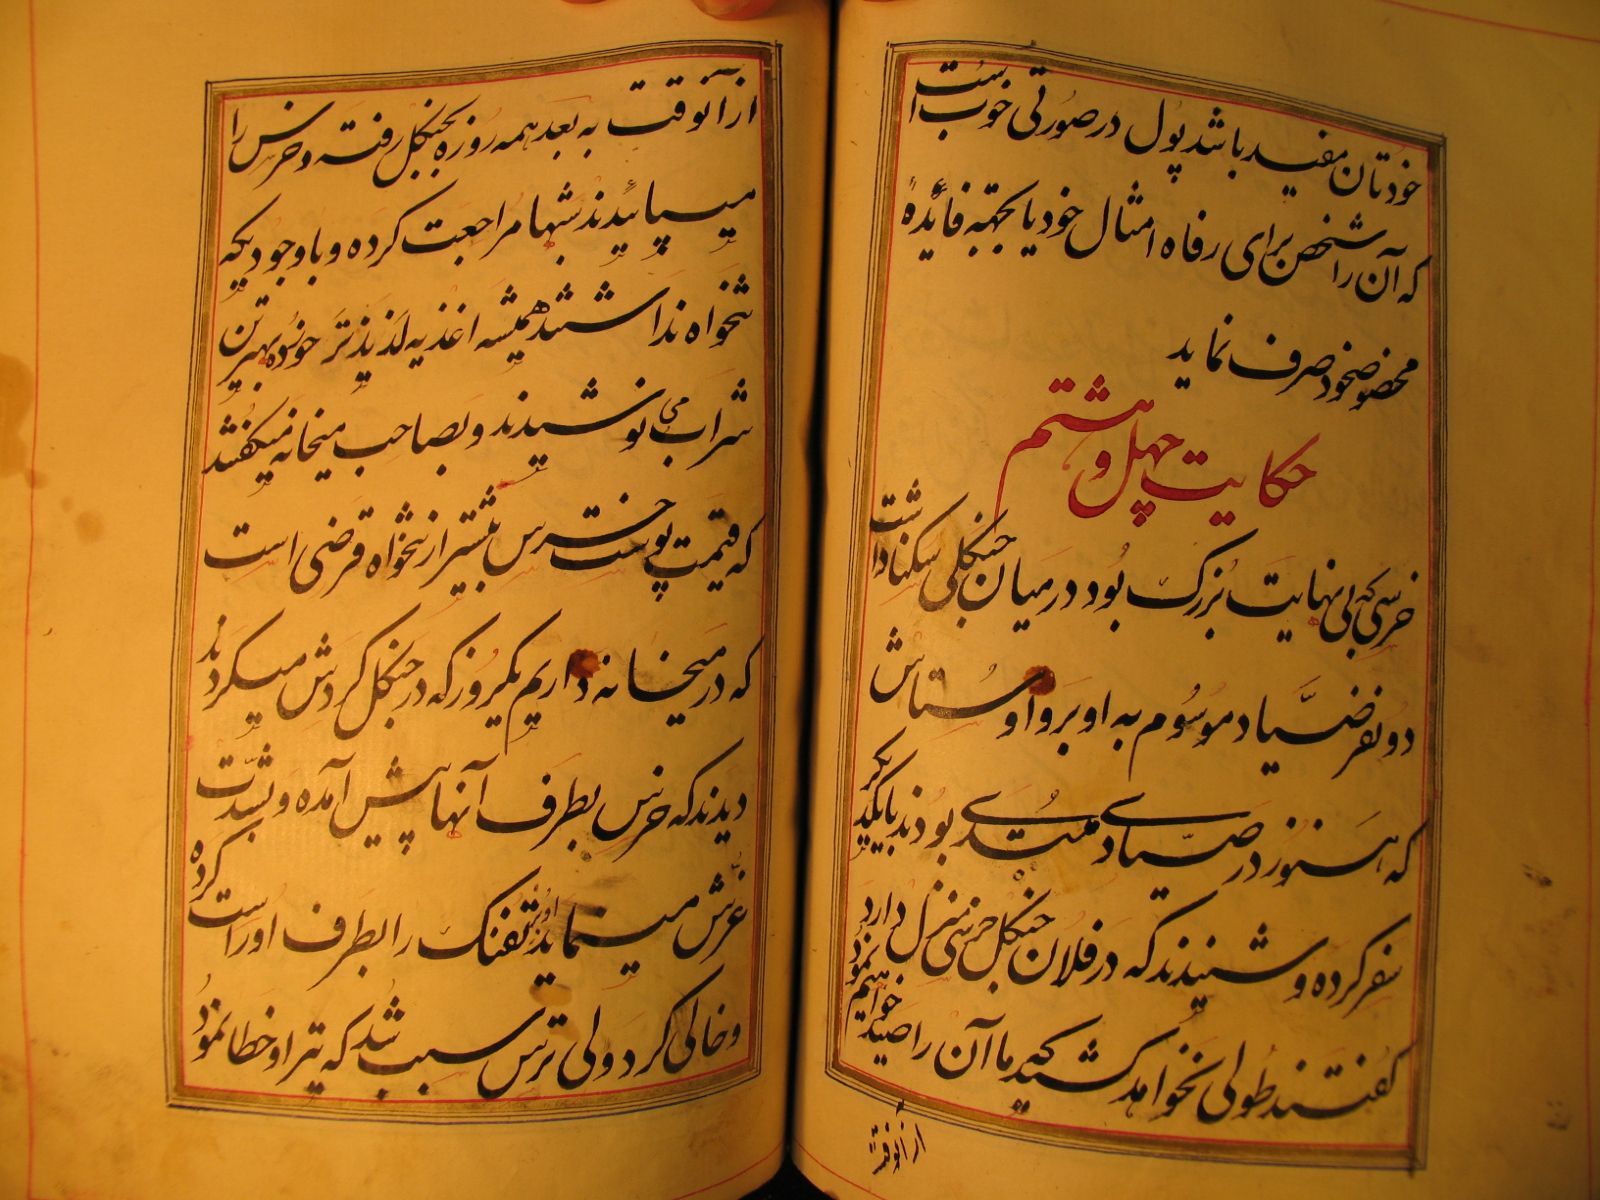 خودتان مفید باشد پول در صورتی خوب است
که آن را شخص برای رفاه امثال خود یا بجهته فائدهٔ
مخصوصخود صرف نماید
حکایت چهل و هشتم
خرسی که بی نهایت بزرگ بود در میان جنکلی سکنا داشت
دو نفر صیّاد موسوم به اوبر و اوستاش
که هنوز در صیّادی مبتدی بودند با یکدیکر
سفر کرده و شنیدند که در فلان جنکل خرسی منزل دارد
کفتند طولی نخواهد کشید که ما آن را صید خواهیم نمود
از آنوقت
از آنوقت به بعد همه روزه بجنکل رفته و خرس را
میپائیدند شبها مراجعت کرده و با وجودیکه
تنخواه نداشتند همیشه اغذیه لذیذتر خورده بهترین
شراب می نوشیدند و بصاحب میخانه میکفتند
که قیمت پوست خرس بیشتر از تنخواه قرضی است
که در میخانه داریم یکروز که در جنکل کردش میکردند
دیدند که خرس بطرف آنها پیش آمده و بشدّت
غرّش مینماید اوبر تفنک را بطرف او راست کرده
و خالی کرد ولی ترس سبب شد که تیر او خطا نمود